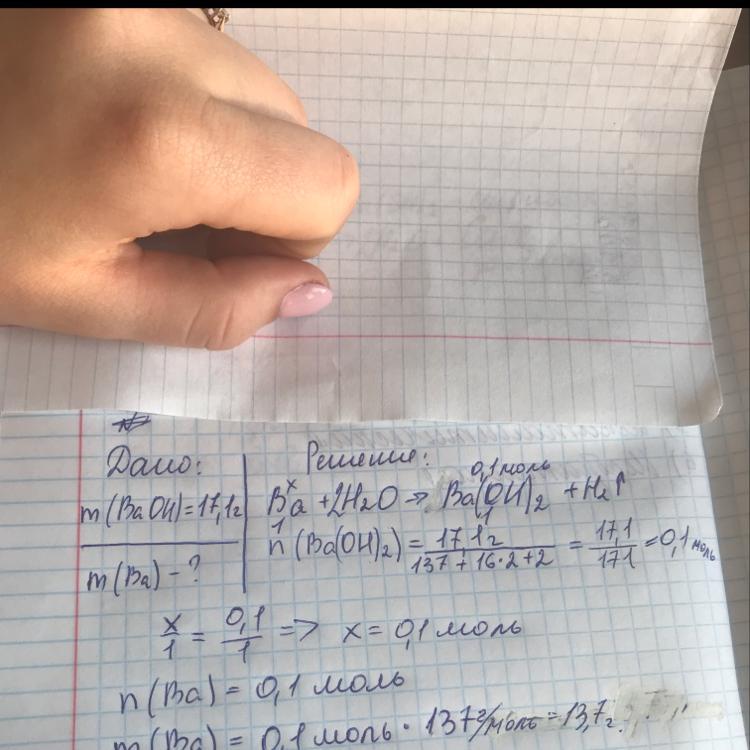 Дано:
m(BaOH)=17,1г
m(Ba) - ?
Решение:
x 0,1 моль
Ba + 2H2O → Ba(OH)2 + H2↑
1 1
n(Ba(OH)2) = 17,1г / 137 + 16·2 + 2 = 17,1 / 171 = 0,1 моль
x/1 = 0,1/1 => x = 0,1 моль
n(Ba) = 0,1 моль
m(Ba) = 0,1 моль · 137 г/моль = 13,7г.